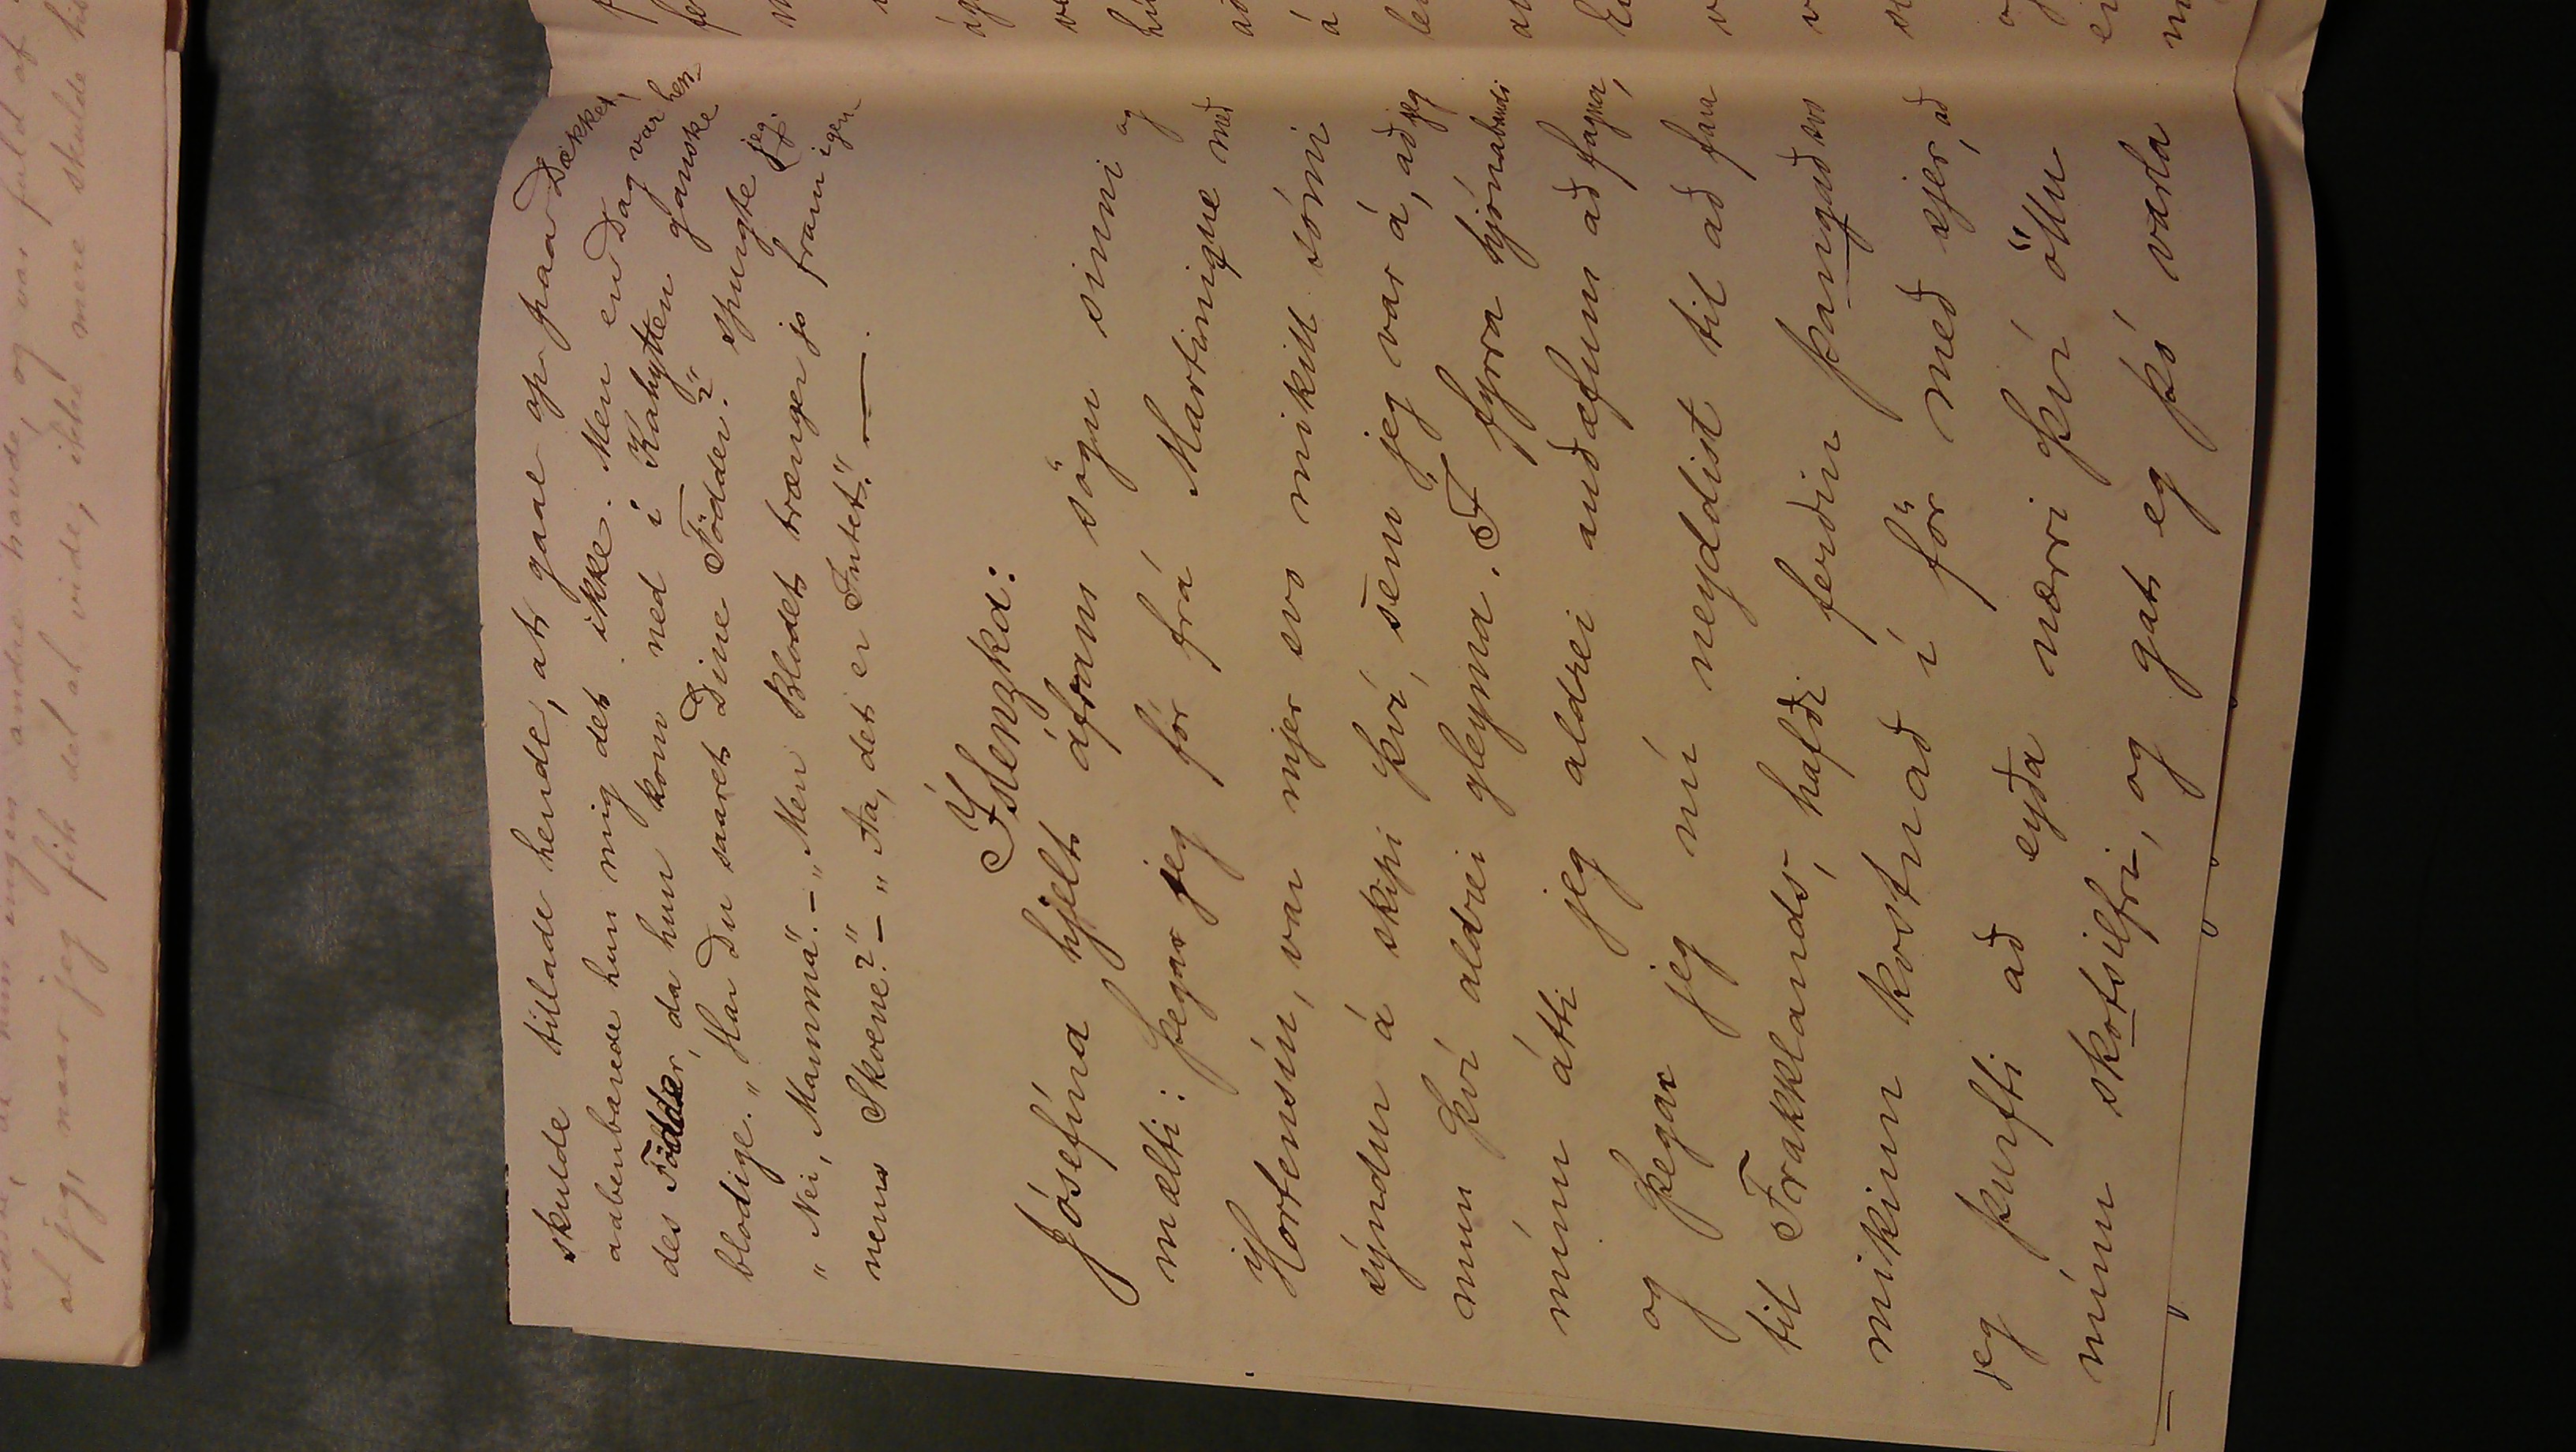 at jeg, naar jeg fik det at vide, ikke mere skulde
skulde tillade hende, at gaae op paa Dækket,
aabenbarede hun mig det ikke. Men en Dag var hen-
des Födder, da hun kom ned i Kahytten ganske
blodige. „Har Du saaret Dine Födder?" spurgte jeg.
„Nei, Mamma". – „Men Blodet trænger jo frem igen-
nem Skoene?" – „Aa, det er Intet". —— .
Íslenzka:
Jósefína hjelt áfram sögu sinni og
mælti: Þegar jeg fór frá Martinique með
Hortensíu, var mjer svo mikill sómi
sýndur á skipi því, sem jeg var á, að jeg
mun því aldrei gleyma. Í fyrra hjónabandi
mínu átti jeg aldrei auðæfum að fagna,
og þegar jeg nú neyddist til að fara
til Frakklands, hafði ferðin þangað svo
mikinn kostnað í för með sjer, að
jeg þurfti að eyða nærri því öllu
mínu skotsilfri, og gat eg þó varla